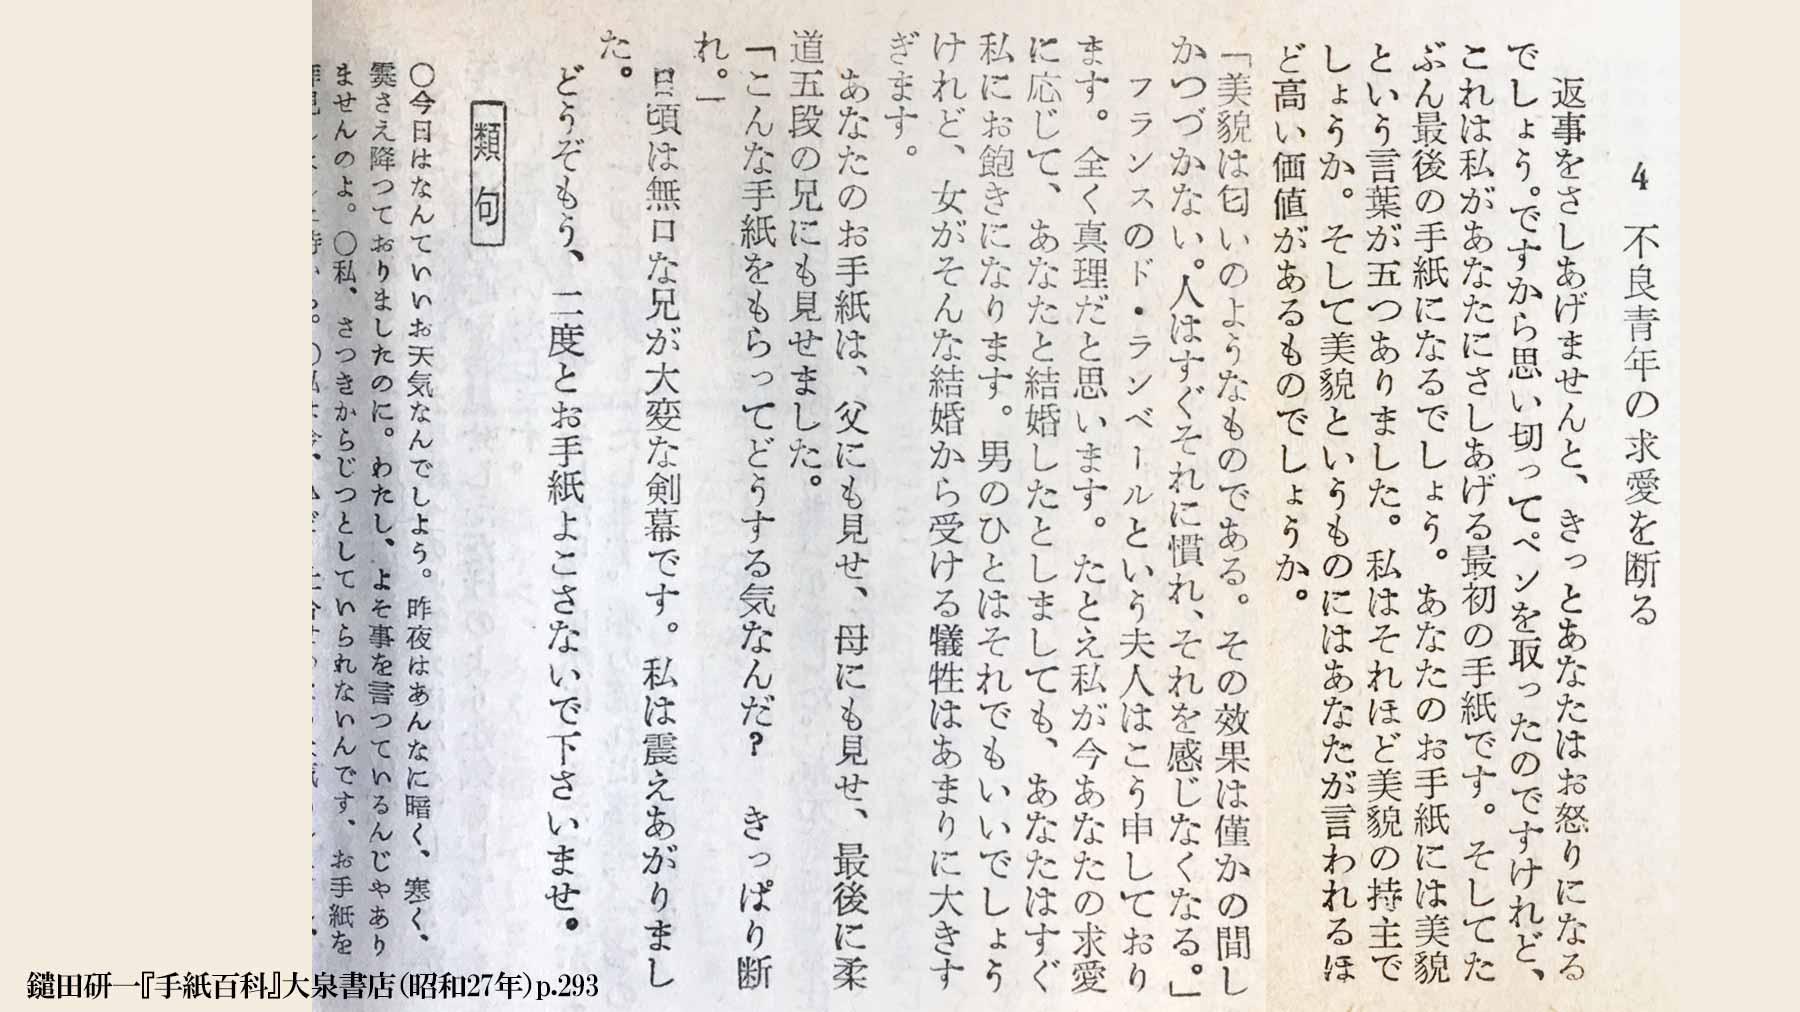 4 不良青年の求愛を断る
返事をさしあげませんと、きっとあなたはお怒りになる
でしょう。ですから思い切ってペンを取ったのですけれど、
これは私があなたにさしあげる最初の手紙です。そしてた
ぶん最後の手紙になるでしょう。あなたのお手紙には美貌
という言葉が五つありました。私はそれほど美貌の持主で
しょうか。そして美貌というものにはあなたが言われるほ
ど高い価値があるものでしょうか。
「美貌は匂いのようなものである。その効果は僅かの間し
かつづかない。人はすぐそれに慣れ、それを感じなくなる。」
フランスのド・ランベールという夫人はこう申しており
ます。全く真理だと思います。たとえ私が今あなたの求愛
に応じて、あなたと結婚したとしましても、あなたはすぐ
私にお飽きになります。男のひとはそれでもいいでしょう
けれど、女がそんな結婚から受ける犠牲はあまりに大きす
ぎます。
あなたのお手紙は、父にも見せ、母にも見せ、最後に柔
道五段の兄にも見せました。
「こんな手紙をもらってどうする気なんだ? きっぱり断
れ。」
日頃は無口な兄が大変な剣幕です。私は震えあがりまし
た。
どうぞもう、二度とお手紙よこさないで下さいませ。
類句
○今日はなんていいお天気なんでしよう。昨夜はあんなに暗く、寒く、
霙さえ降つておりましたのに。わたし、よそ事を言つているんじゃあり
ませんのよ。○私、さつきからじつとしていられないんです、お手紙を
鑓田研一『手紙百科』大泉書店(昭和27年)p.293